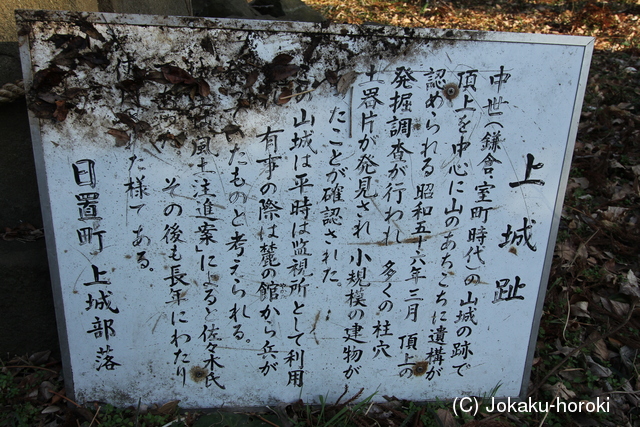 上城趾
中世(鎌倉・室町時代)の山城の跡で
頂上を中心に山のあちこちに遺構が
認められる 昭和五十六年三月 頂上の
発掘調査が行われ 多くの柱穴
土器片が発見され 小規模の建物が
たことが確認された。
の山城は平時は監視所として利用
有事の際は麓の館から兵が
たものと考えられる。
風土注進案によると佐々木氏
その後も長年にわたり
た様である。
日置町 上城部落
(C) Jokaku-horoki